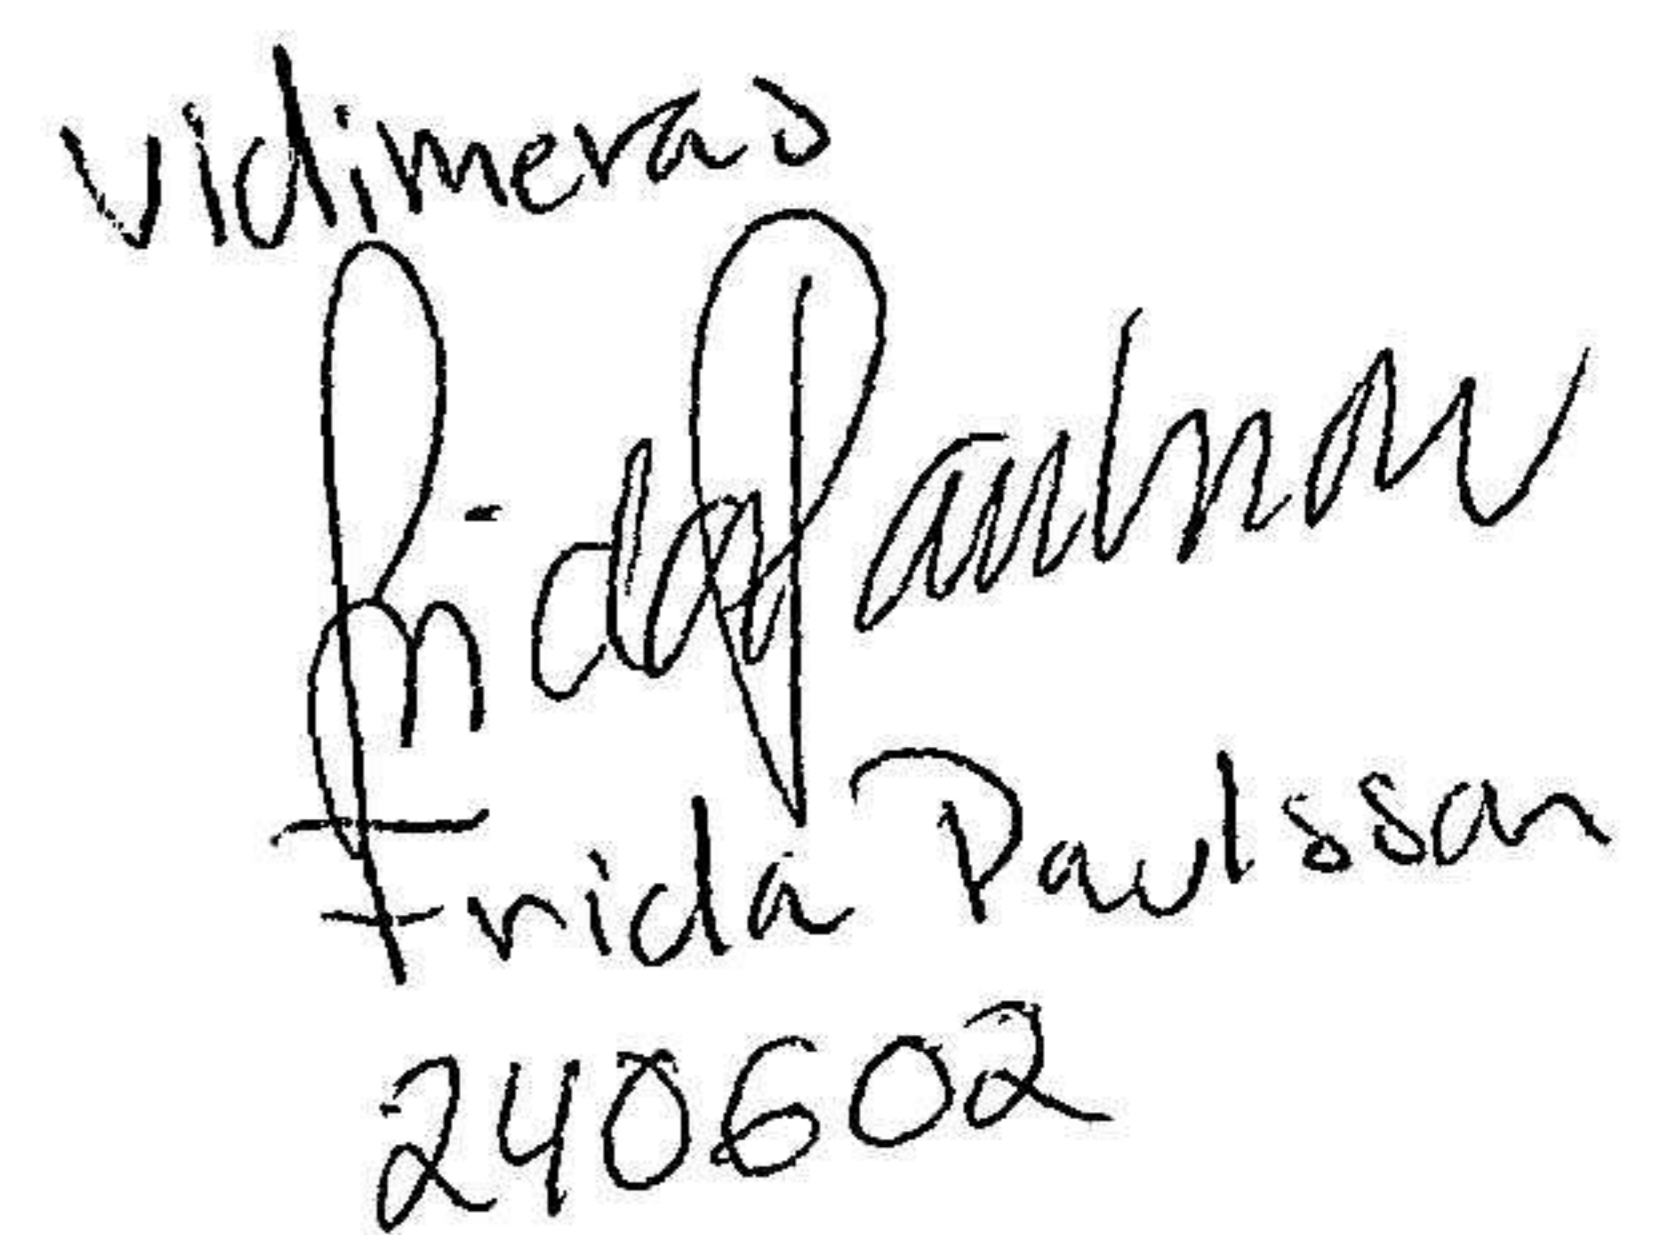 Vidimeras
Frida Paulsson
Frida Paulsson
240602